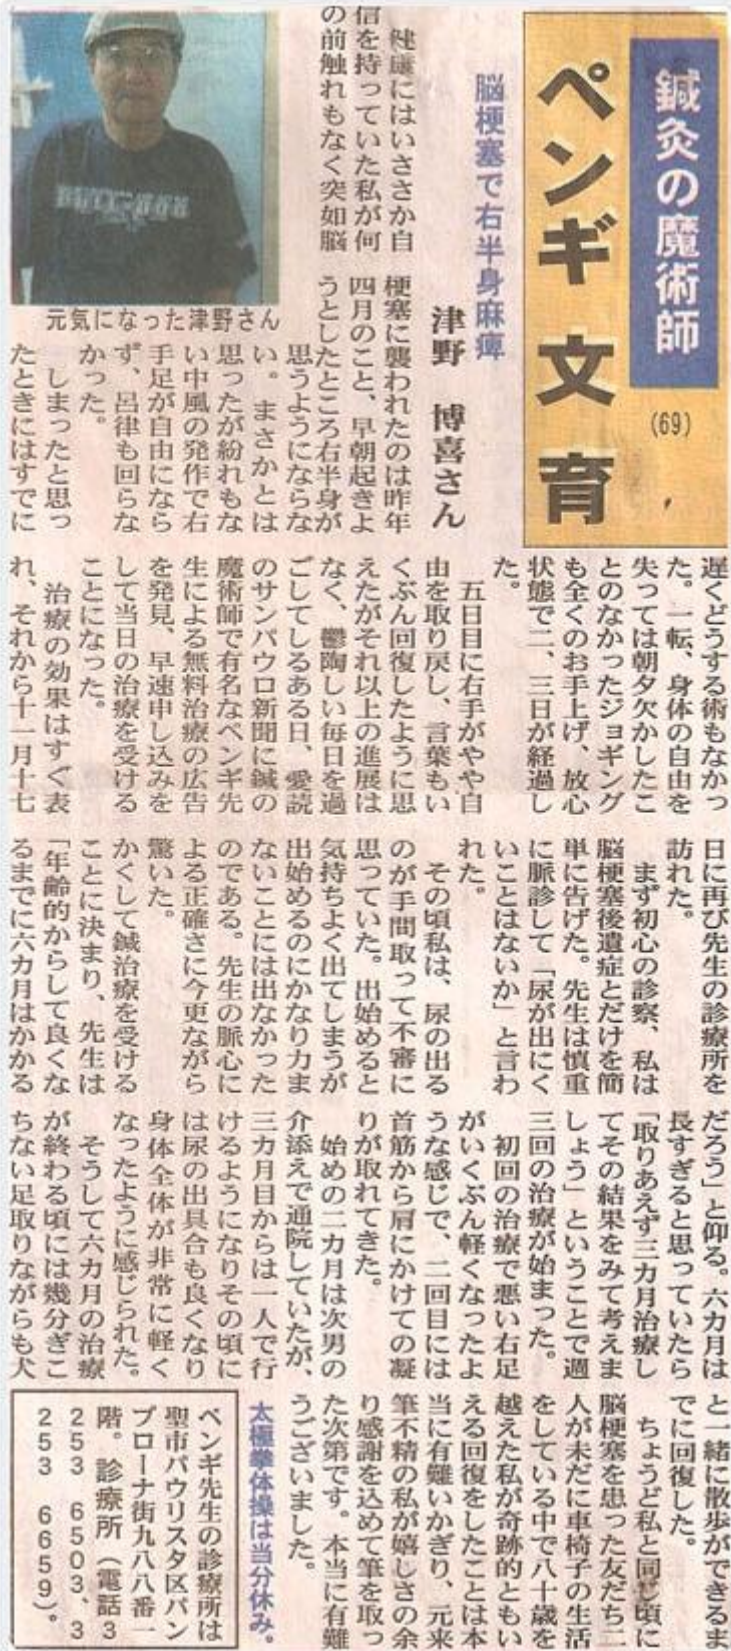 鍼灸の魔術師
(69)
ペンギ 文育
脳梗塞で右半身麻痺
津野 博喜さん
健康にはいささか自
信を持っていた私が何
の前触れもなく突如脳
梗塞に襲われたのは昨年
四月のこと、早朝起きよ
うとしたところ右半身が
思うようにならな
い。まさかとは
思ったが紛れもな
い中風の発作で右
手足が自由になら
ず、呂律も回らな
かった。
しまったと思っ
たときにはすでに
元気になった津野さん
遅くどうする術もなかっ
た。一転、身体の自由を
失っては朝夕欠かしたこ
とのなかったジョギング
も全くのお手上げ、放心
状態で二、三日が経過し
た。
五日目に右手がやや自
由を取り戻し、言葉もい
くぶん回復したように思
えたがそれ以上の進展は
なく、鬱陶しい毎日を過
ごしてしるある日、愛読
のサンパウロ新聞に鍼の
魔術師で有名なペンギ先
生による無料治療の広告
を発見、早速申し込みを
して当日の治療を受ける
ことになった。
治療の効果はすぐ表
れ、それから十一月十七
日に再び先生の診療所を
訪れた。
まず初心の診察、私は
脳梗塞後遺症とだけを簡
単に告げた。先生は慎重
に脈診して「尿が出にく
いことはないか」と言わ
れた。
その頃私は、尿の出る
のが手間取って不審に
思っていた。出始めると
気持ちよく出てしまうが
出始めるのにかなり力ま
ないことには出なかった
のである。先生の脈心に
よる正確さに今更ながら
驚いた。
かくして鍼治療を受ける
ことに決まり、先生は
「年齢的からして良くな
るまでに六カ月はかかる
だろう」と仰る。六カ月は
長すぎると思っていたら
「取りあえず三カ月治療し
てその結果をみて考えま
しょう」ということで週
三回の治療が始まった。
初回の治療で悪い右足
がいくぶん軽くなったよ
うな感じで、二回目には
首筋から肩にかけての凝
りが取れてきた。
始めの二カ月は次男の
介添えで通院していたが、
三カ月目からは一人で行
けるようになりその頃に
は尿の出具合も良くなり
身体全体が非常に軽く
なったように感じられた。
そうして六カ月の治療
が終わる頃には幾分ぎこ
ちない足取りながらも犬
と一緒に散歩ができるま
でに回復した。
ちょうど私と同じ頃に
脳梗塞を患った友だち二
人が未だに車椅子の生活
をしている中で八十歳を
越えた私が奇跡的ともい
える回復をしたことは本
当に有難いかぎり、元来
筆不精の私が嬉しさの余
り感謝を込めて筆を取っ
た次第です。本当に有難
うございました。
太極拳体操は当分休み。
ペンギ先生の診療所は
聖市パウリスタ区パン
プローナ街九八八番一
階。診療所（電話3
253 6503、3
253 6659）。